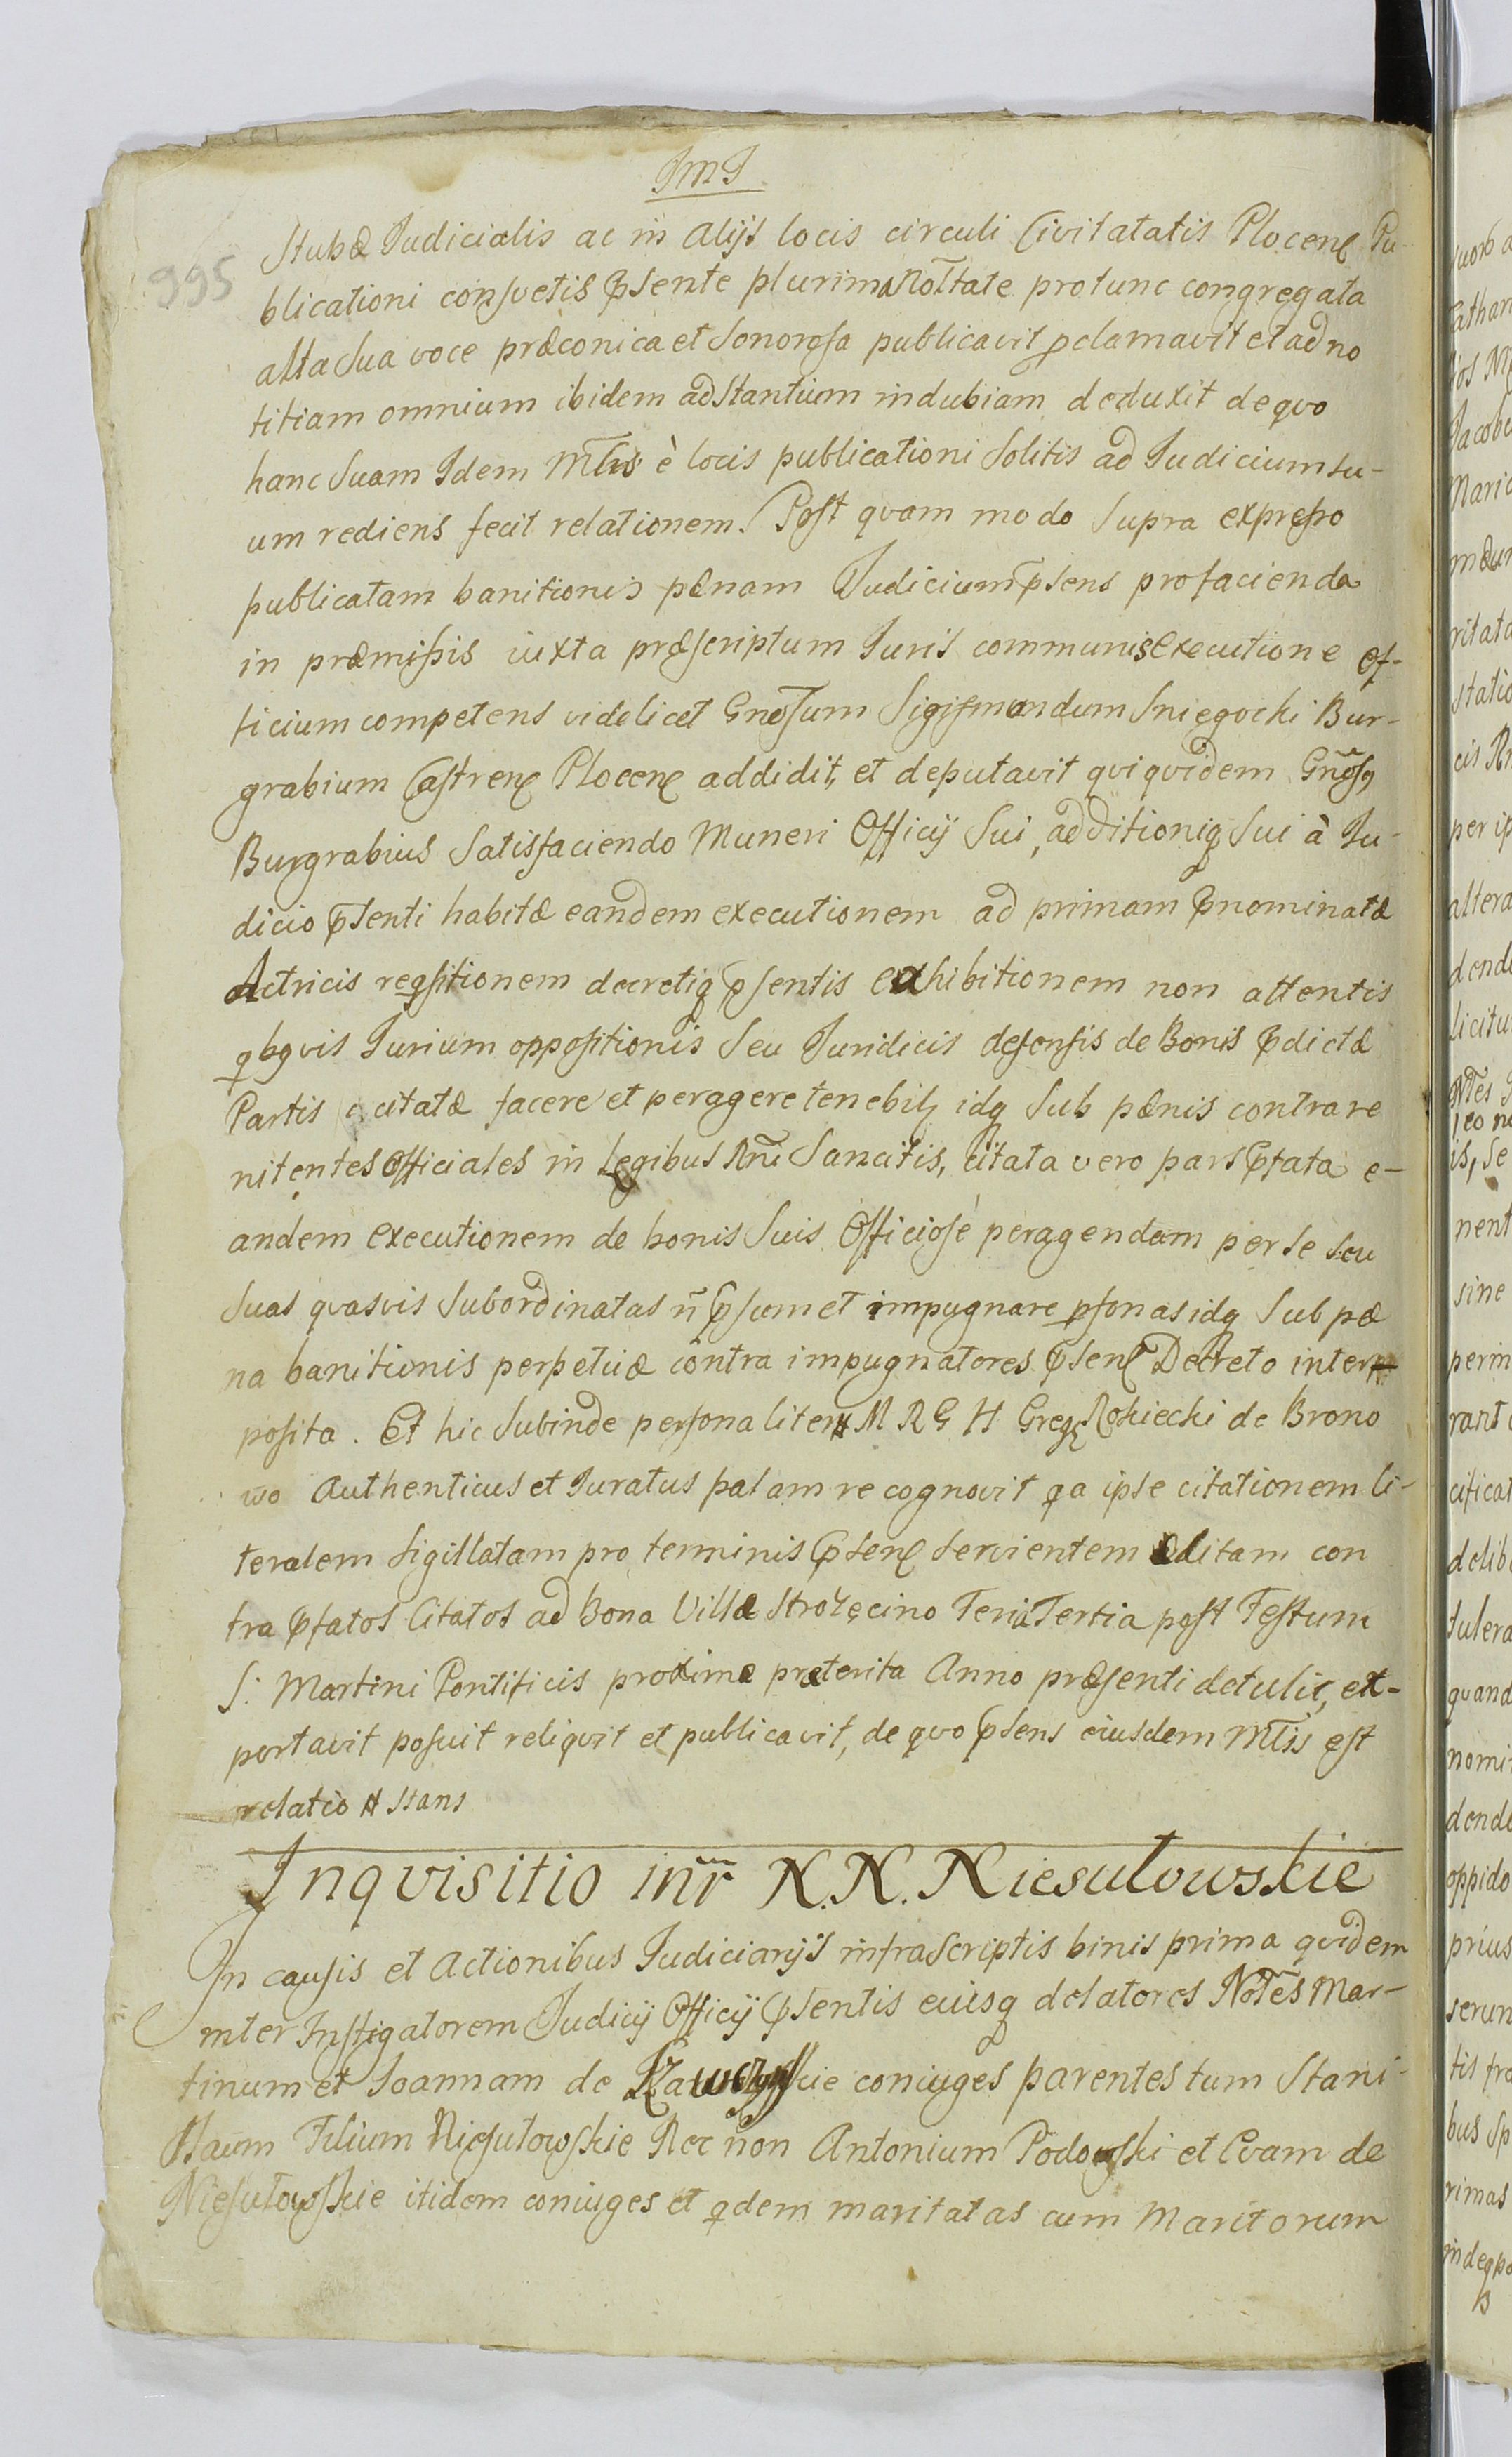 JMJ
995
Stubæ Judicialis ac in alijs locis circuli Civitatatis Plocenẽ Pu-
blicationi consvetis p̃sente plurima Nol̃tate protunc congregata
alta sua voce præconica et sonorosa publicavit p̱clamavit et ad no
titiam omnium ibidem adstantium indubiam deduxit de qvo
hanc suam Idem Ml̃is è locis publicationi solitis ad Judicium su-
um rediens fecit relationem. Post qvam modo supra expresso
publicatam banitionis pænam Judicium p̃sens pro facienda
in præmissis iuxta præscriptum Juris communis Executione Of-
ficium competens videlicet Gnõsum Sigismundum Sniegocki Bur-
grabium Castrenẽ Plocenẽ addidit, et deputavit qvi qvidem Gñosq
Burgrabius satisfaciendo Muneri Officij sui, additioniq sui à Ju-
dicio p̃senti habitæ eandem executionem ad primam p̃nominatæ
Actricis reqsitionem decretiq p̃sentis exhibitionem non attentis
qbqvis Jurium oppositionis seu Juridicis defensis de Bonis p̃dictæ
Partis citatæ facere et peragere tenebit, idq sub pænis contra re
nitentes Officiales in Legibus Rñi Sancitis, citata vero pars p̃fata e-
andem executionem de bonis suis Officiosè peragendam per se seu
suas qvasvis subordinatas ñ p̃sumet impugnare p̱sonas idq sub pæ
na banitionis perpetuæ contra impugnatores p̃senẽ Decreto inter
posita. Et hic subinde personaliter M R G H Greg Rokiecki de Brono
wo Authenticus et Juratus palam recognovit qa ipse citationem li-
teralem sigillatam pro terminis p̃senẽ servientem editam con
tra p̃fatos Citatos ad Bona Villæ Strożęcino Feria Tertia post Festum
S: Martini Pontificis proxime præterita Anno præsenti detulit, ex-
portavit posuit reliqvit et publicavit, de qvo p̃sens eiusdem Ml̃is est
relatio Stans
Inqvisitio inr̃ N.N. Niesutowskie
In causis et Actionibus Judiciarijs infrascriptis binis prima qvidem
inter Instigatorem Judicij Officij p̃sentis eiusq delatores Nol̃es Mar-
tinum et Joannam de coniuges parentes tum Stani-
slaum Filium Niesutowskie Nec non Antonium Podowski et Evam de
Niesutowskie itidem coniuges et qdem maritatas cum Maritorum